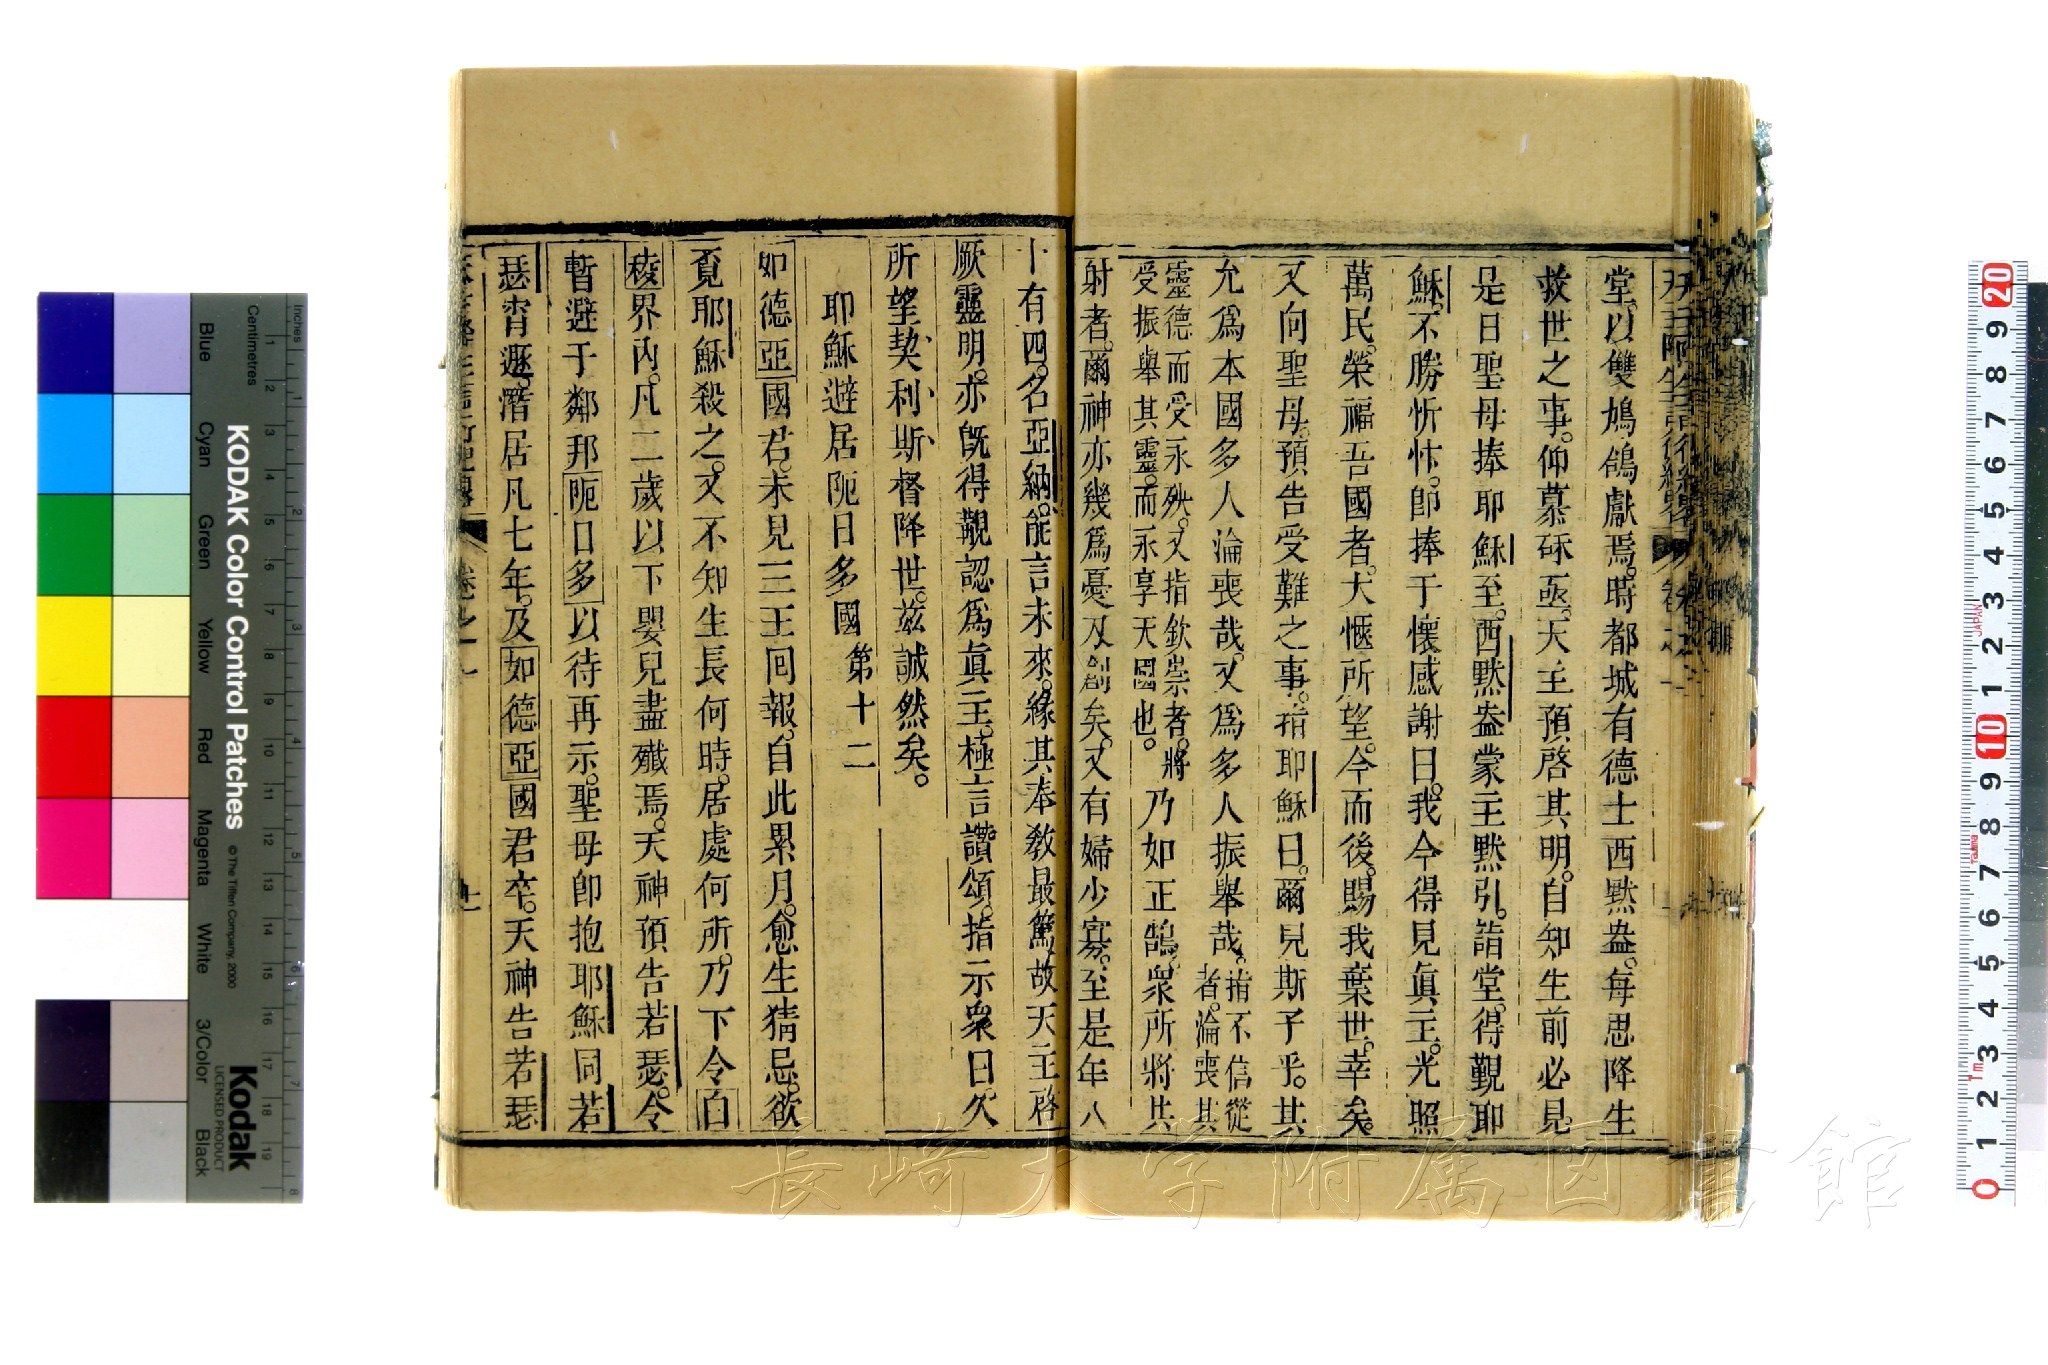 堂。以雙鳩鴿獻焉。時都城有德士西黙盎。每思降生
救世之事。仰慕砯亟。天主預啓其明。自知生前必見。
是日聖母捧耶穌至。西黙盎蒙主黙引。詣堂。得覲耶
穌。不勝忻忭。卽捧于懷感謝曰。我今得見眞主。光照
萬民。榮福吾國者。大愜所望。今而後。賜我棄世。幸矣。
又向聖母。預告受難之事。指耶穌曰。爾見斯子乎。其
允爲本國多人淪喪哉。又爲多人振舉哉。指不信從者。淪喪其
靈德而受永殃。又指欽崇者。將受振舉其靈。而永享天國也。乃如正鵠。衆所將共
射者。爾神亦幾爲憂刄創矣。又有婦少寡。至是年八
十有四。名亞納。能言未來。緣其奉敎最篤。故天主啓
厥靈明。亦旣得覩認爲眞主。極言讚頌。指示衆曰。久
所望契利斯督降世。茲誠然矣。
耶穌避居阨日多國 第十二
如德亞國君。未見三王囘報。自此累月。愈生猜忌。欲
覓耶穌殺之。又不知生長何時。居處何所。乃下令白
稜界內。凡二歲以下嬰兒盡殲焉。天神預告若瑟。令
暫避于鄰邦阨日多以待再示。聖母卽抱耶穌同若
瑟宵遯。潛居凡七年。及如德亞國君卒。天神告若瑟
卷之一
長崎大学附属図書館
KODAK Color Control Patches
© The Tiffen Company, 2000
Kodak
LICENSED PRODUCT
Inches
Centimetres
Blue
Cyan
Green
Yellow
Red
Magenta
White
3/Color
Black
JAPAN
Tajima
1m